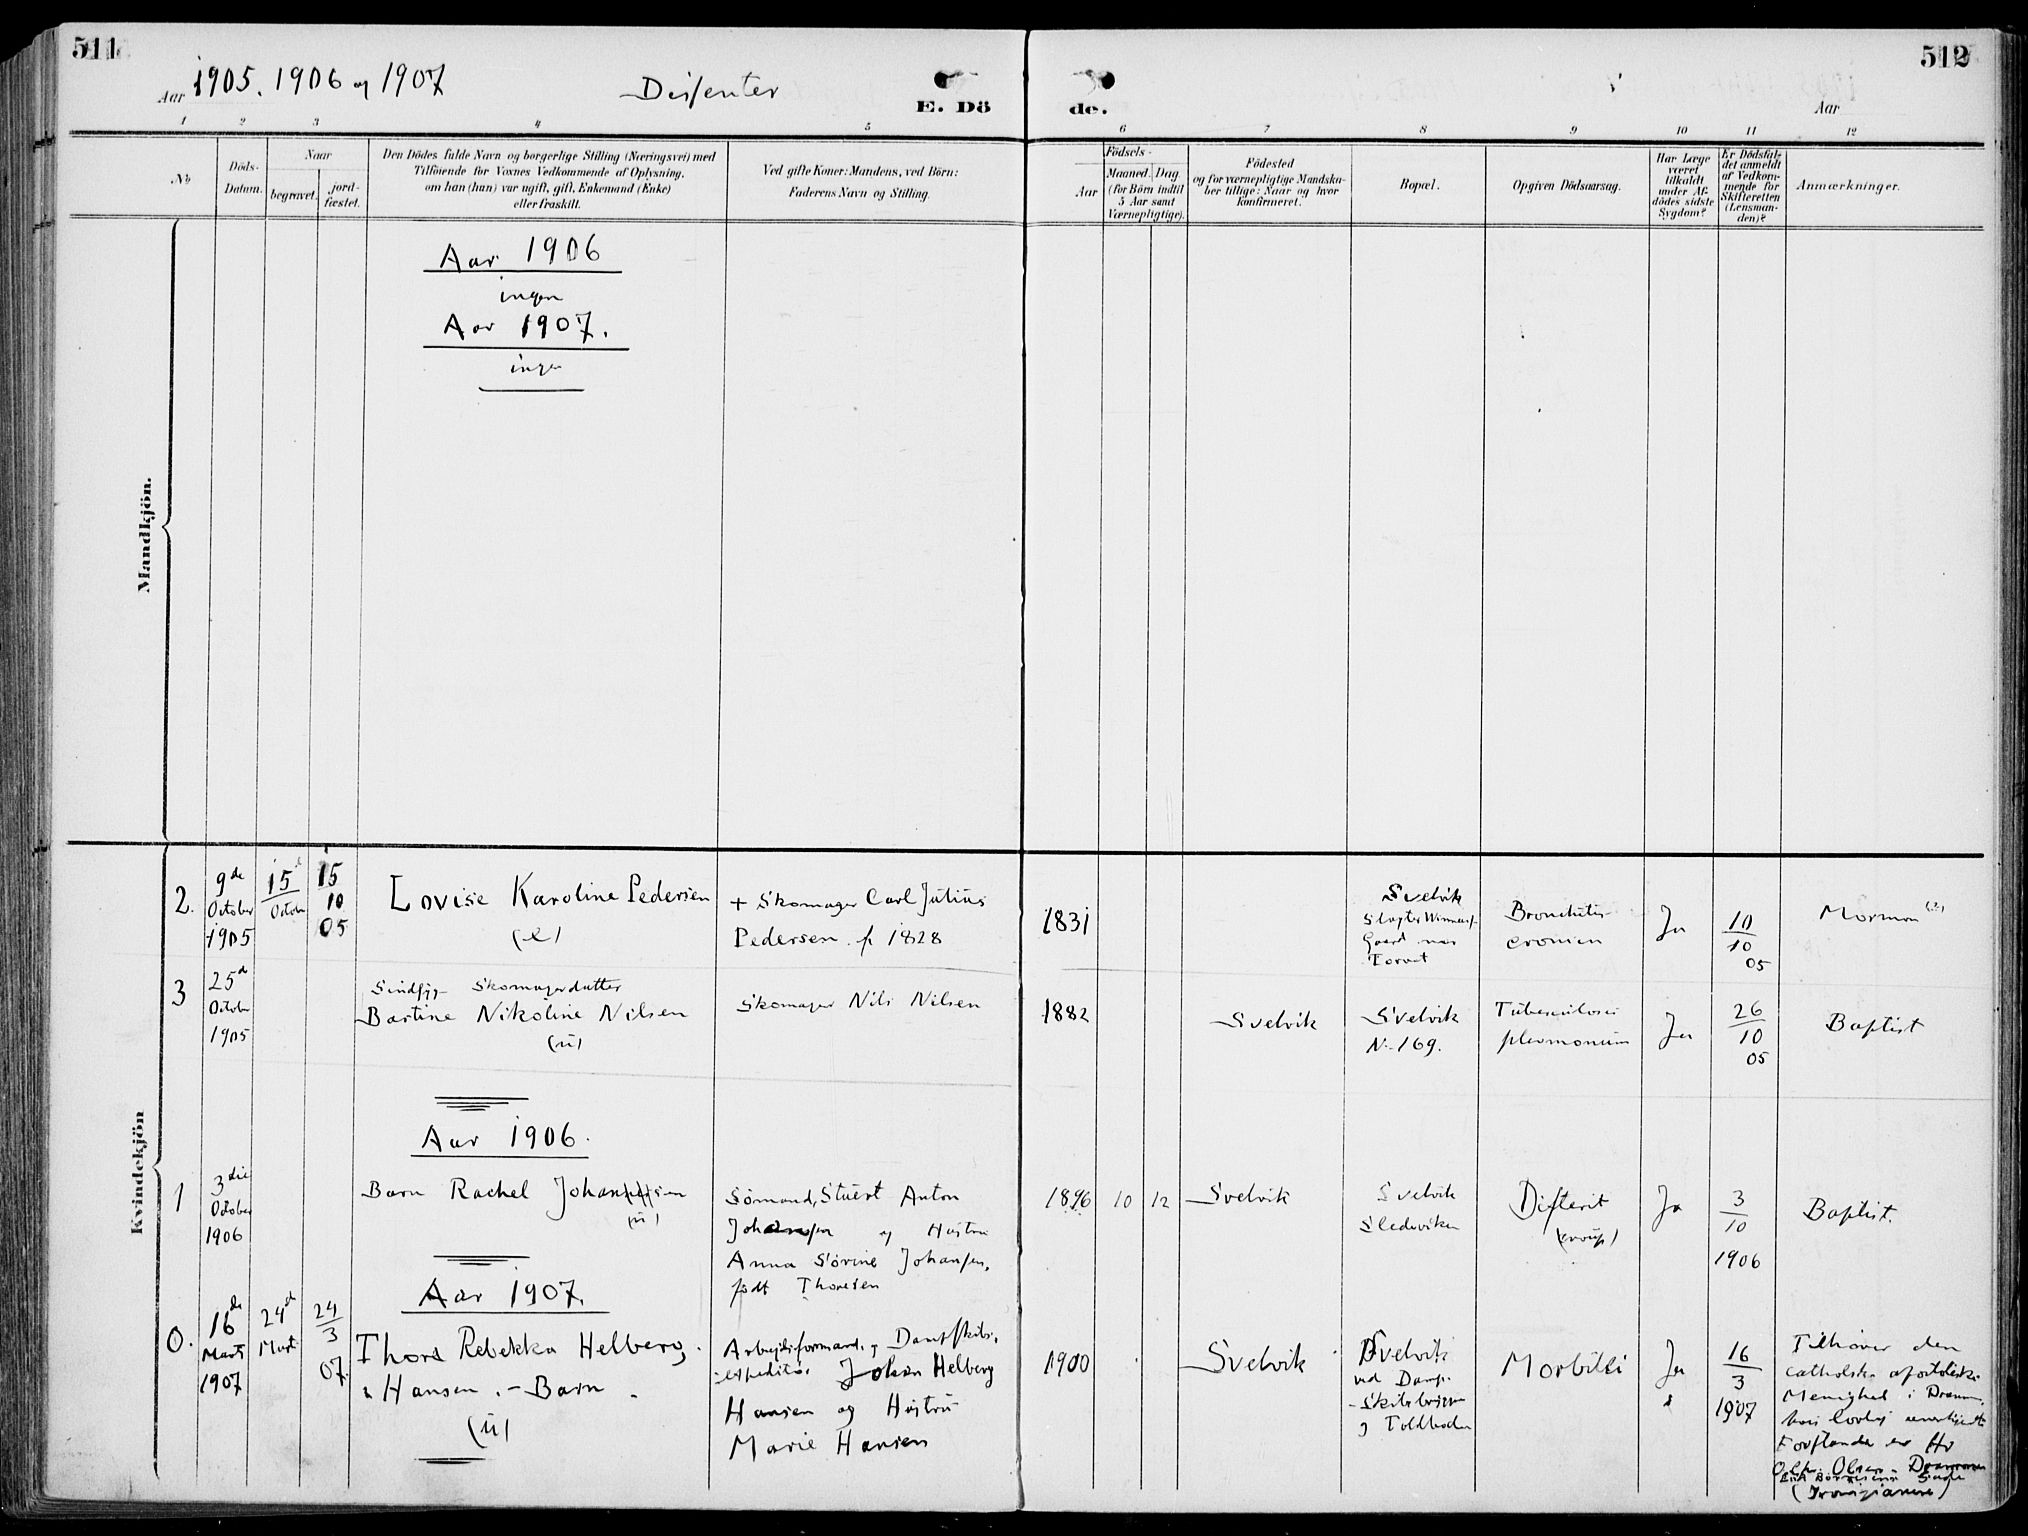 511
512
Aar 1905. 1906 og 1907
Dissenter
E. Dö
de.
Aar
1 2 3 4 5 6 7 8 9 10 11 12
No
Döds-
Datum.
Naar
begravet.
jord-
fæstet.
Den Dödes fulde Navn og borgerlige Stilling (Næringsvei) med
Tilföiende for Voxnes Vedkommende af Oplysning,
om han (hun) var ugift, gift, Enkemand (Enke)
eller fraskilt.
Ved gifte Koner: Mandens, ved Börn:
Faderens Navn og Stilling.
Födsels-
Aar
Maaned. Dag
(for Börn indtil
5 Aar samt
Værnepligtige).
Födested
og for værnepligtige Mandska-
ber tillige: Naar og hvor
konfirmeret.
Bopæl.
Opgiven Dödsaarsag.
Har Læge
været
tilkaldt
under Af-
dödes sidste
Sygdom?
Er Dödsfal-
det anmeldt
af Vedkom-
mende for
Skifteretten
(Lensman-
den)?
Anmærkninger.
Mandkjön.
Aar 1906
ingen
Aar 1907.
ingen
Kvindekjön
2.
9de
October
1905
15d
October
15
10
05
Lovise Karoline Pedersen
(e)
+ Skomager Carl Julius
Pedersen. f. 1828
1831
Svelvik
Gaard nær
Torvet
Ja
10
10
05
Mormon (?)
3
25d
October
1905
Skomagerdatter
Bastine Nikoline Nilsen
(ü)
Skomager Nils Nilsen
1882
Svelvik
Svelvik
No 169.
Ja
26
10
05
Baptist
Aar 1906.
1
3die
October
1906
Barn Rachel Johansen
(ü)
Sömand, Stuert Anton
Johansen og Hustru
Anna Sörine Johansen,
födt Thoresen
1896 10 12
Svelvik
Svelvik
Difterit
(croup)
Ja
3
10
1906
Baptist.
Aar 1907.
0.
16de
Marts
1907
24d
Mart
24
3
07.
Thora Rebekka Helberg
Hansen. – Barn
(ü)
Arbeidsformand, og Dampskibs-
expeditör Johan Helberg
Hansen og Hustru
Marie Hansen
1900
Svelvik
Svelvik
ved Damp-
skibsbryggen
og Toldboden
Morbilli
Ja
16
3
1907
Tilhörer den
catholsk apostolisk
Menighed i Dramm.
Forstander er Hr
Olsen. Drammen